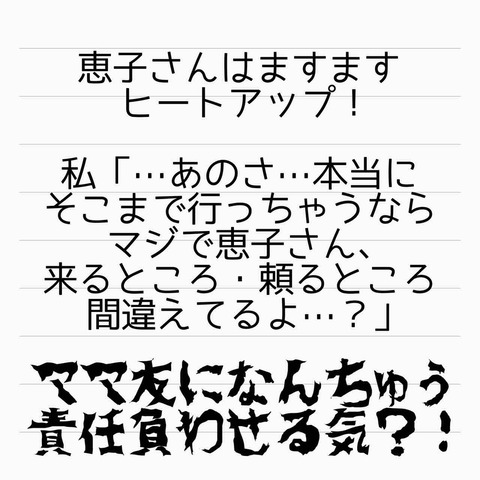 恵子さんはますます
ヒートアップ！
私「…あのさ…本当に
そこまで行っちゃうなら
マジで恵子さん、
来るところ・頼るところ
間違えてるよ…？」
ママ友になんちゅう
責任負わせる気？！